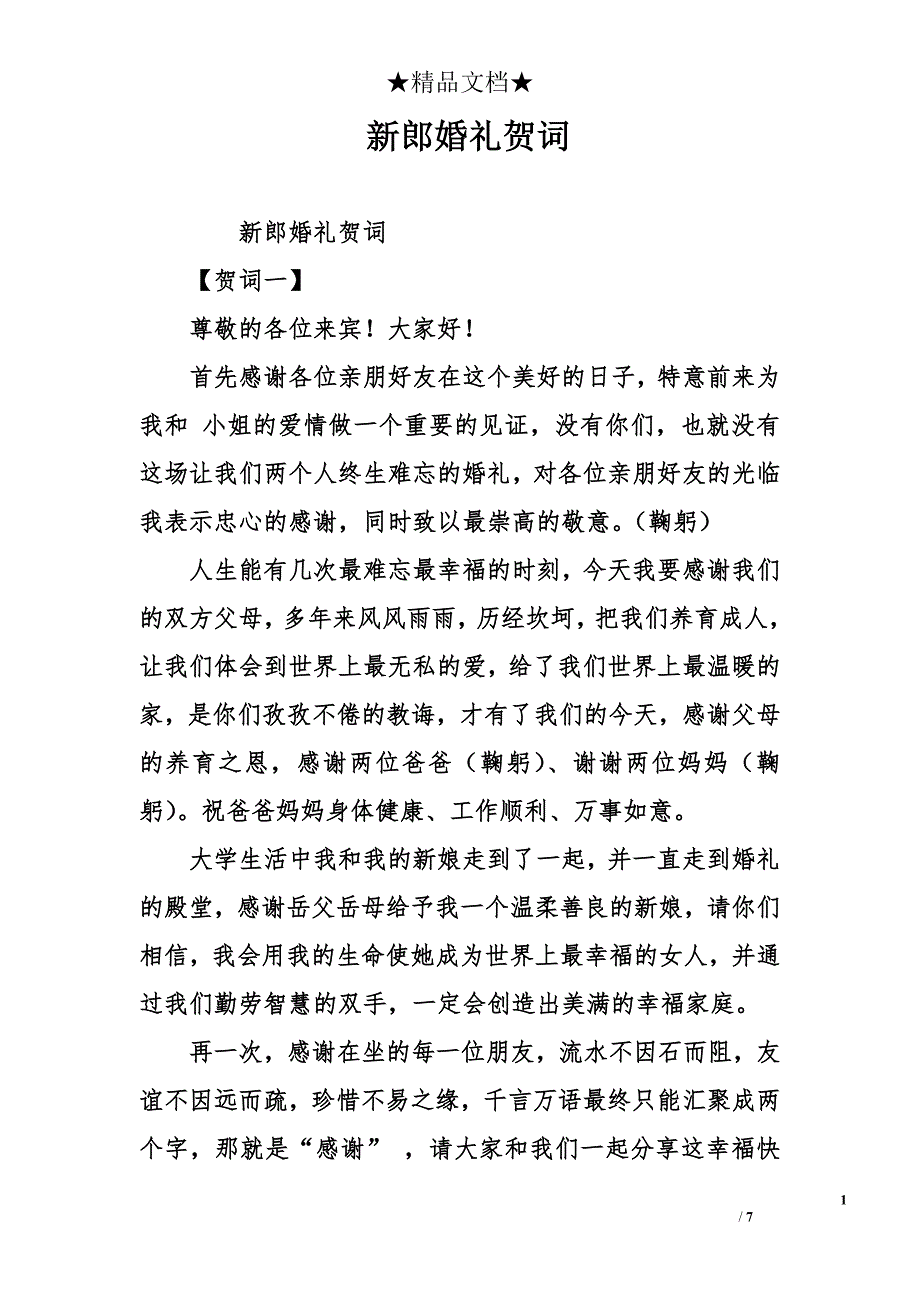 ★精品文档★
新郎婚礼贺词
新郎婚礼贺词
【贺词一】
尊敬的各位来宾！大家好！
首先感谢各位亲朋好友在这个美好的日子，特意前来为
我和 小姐的爱情做一个重要的见证，没有你们，也就没有
这场让我们两个人终生难忘的婚礼，对各位亲朋好友的光临
我表示忠心的感谢，同时致以最崇高的敬意。（鞠躬）
人生能有几次最难忘最幸福的时刻，今天我要感谢我们
的双方父母，多年来风风雨雨，历经坎坷，把我们养育成人，
让我们体会到世界上最无私的爱，给了我们世界上最温暖的
家，是你们孜孜不倦的教诲，才有了我们的今天，感谢父母
的养育之恩，感谢两位爸爸（鞠躬）、谢谢两位妈妈（鞠
躬）。祝爸爸妈妈身体健康、工作顺利、万事如意。
大学生活中我和我的新娘走到了一起，并一直走到婚礼
的殿堂，感谢岳父岳母给予我一个温柔善良的新娘，请你们
相信，我会用我的生命使她成为世界上最幸福的女人，并通
过我们勤劳智慧的双手，一定会创造出美满的幸福家庭。
再一次，感谢在坐的每一位朋友，流水不因石而阻，友
谊不因远而疏，珍惜不易之缘，千言万语最终只能汇聚成两
个字，那就是“感谢” ，请大家和我们一起分享这幸福快
1
/ 7